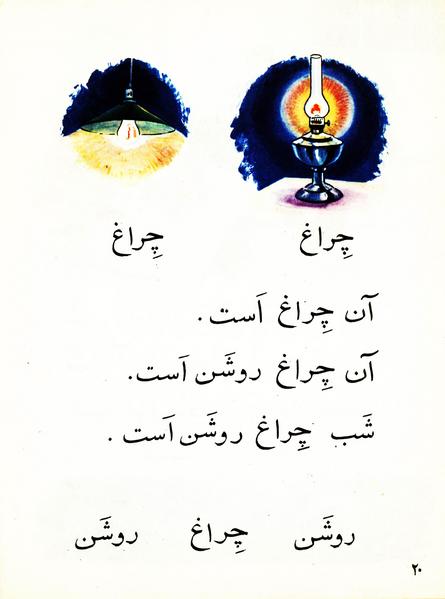 چِراغ چِراغ
آن چِراغ اَست.
آن چِراغ روشَن اَست.
شَب چِراغ روشَن اَست.
روشَن چِراغ روشَن
۲۰